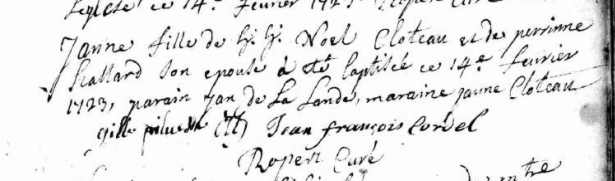 l'eglise ce 14e fevrier 1723 Ropert Curé
Janne fille de h. h. Noel Cloteau et de perrinne
Scallard son epouse a eté baptisée ce 14e feuvrier
1723, parain Jan de La Lande, maraine janne Cloteau
gille Jean françois Corvel
Ropert Curé